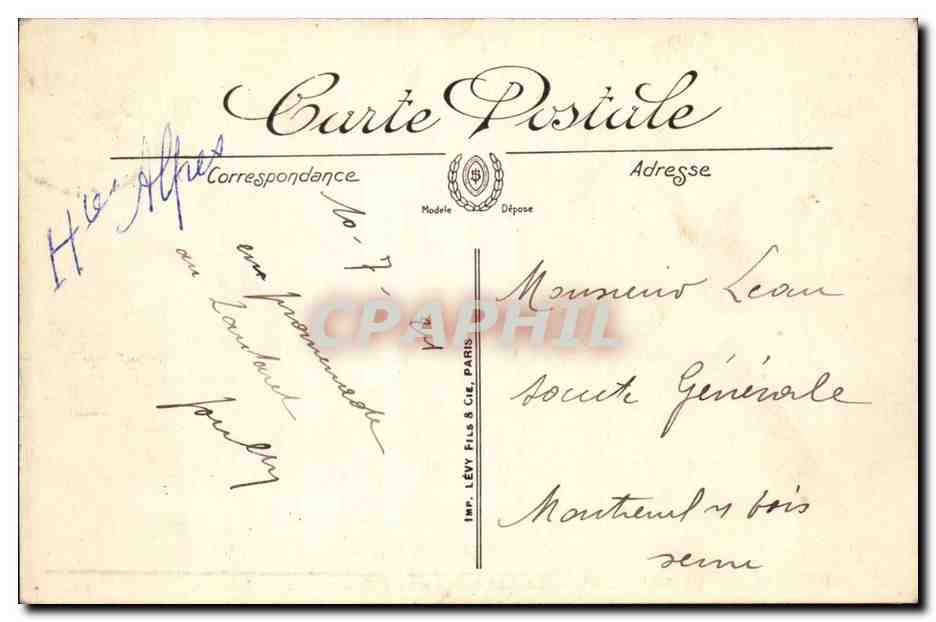 Carte Postale
Correspondance
Adresse
Modele Dépose
$
Htes Alpes
10-7-
en promenade
au Lautaret
CPAPHIL
IMP. LÉVY FILS & CIE, PARIS
Monsieur
Générale
Montreuil s bois
seine